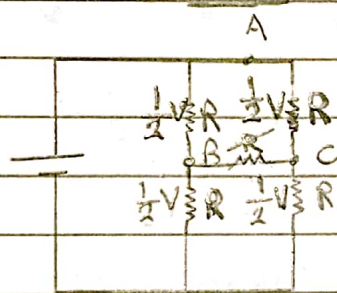 A
½V R ½V R
B R C
½V R ½V R